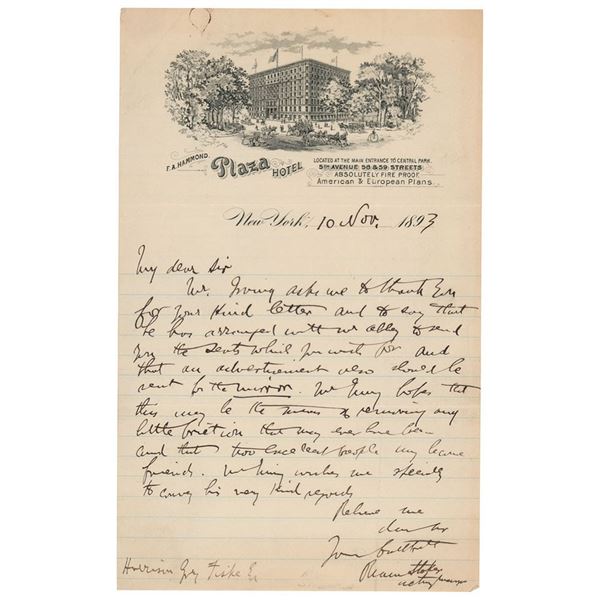 F. A. HAMMOND.
Plaza HOTEL
LOCATED AT THE MAIN ENTRANCE TO CENTRAL PARK.
5TH AVENUE 58 & 59 STREETS
ABSOLUTELY FIRE PROOF.
American & European Plans.
New York, 10 Nov. 1893
My dear Sir
Mr. Irving asks me to thank you
for your kind letter and to say that
he has arranged with Mr Abbey to send
you the seats which you wish for and
that an advertisement also should be
sent for the mirror. Mr Irving hopes that
this may be the means of removing any
little friction that may ever have been
and that two excellent people may become
friends. Mr Irving wishes me specially
to convey his very kind regards
Believe me
dear Sir
Yours faithfully
Bram Stoker
acting manager
Harrison Grey Fiske Esq